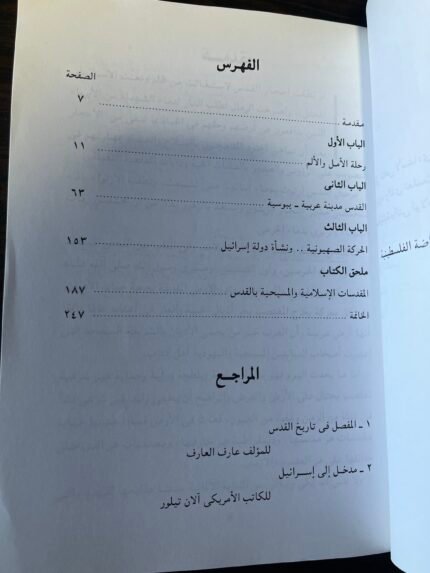 الفهرس
الصفحة
مقدمة ........ ٧
الباب الأول
رحلة الأمل والألم ........ ١١
الباب الثانى
القدس مدينة عربية ـ يبوسية ........ ٦٣
الباب الثالث
الحركة الصهيونية .. ونشأة دولة إسرائيل ........ ١٥٣
ملحق الكتاب
المقدسات الإسلامية والمسيحية بالقدس ........ ١٨٧
الخاتمة ........ ٢٤٧
المراجـع
١ ـ المفصل فى تاريخ القدس
للمؤلف عارف العارف
٢ ـ مدخـل إلى إسـرائيل
للكاتب الأمريكى آلان تيلور
الفلسطينية